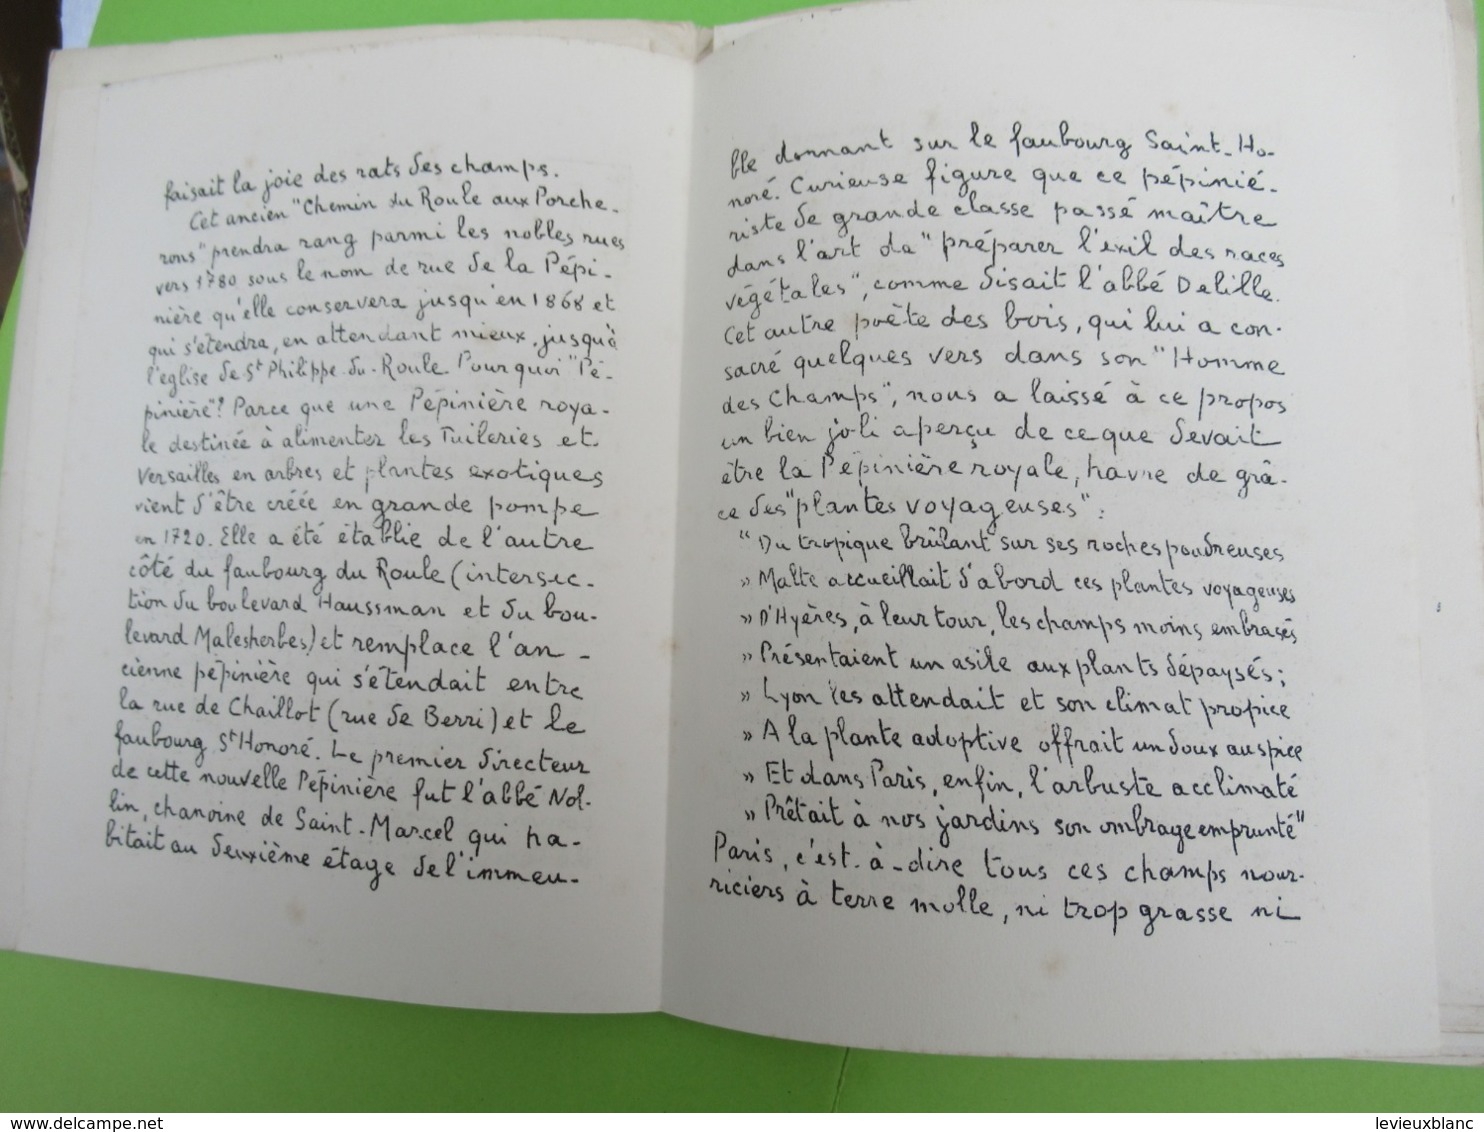 faisait la joie des rats des champs.
Cet ancien "Chemin du Roule aux Porche-
rons" prendra rang parmi les nobles rues
vers 1780 sous le nom de rue de la Pépi-
nière qu'elle conservera jusqu'en 1868 et
qui s'étendra, en attendant mieux, jusqu'à
l'église de St Philippe-du-Roule. Pourquoi "Pé-
pinière"? Parce que une Pépinière roya-
le destinée à alimenter les Tuileries et
Versailles en arbres et plantes exotiques
vient d'être créée en grande pompe
en 1720. Elle a été établie de l'autre
côté du faubourg du Roule (intersec-
tion du boulevard Haussman et du bou-
levard Malesherbes) et remplace l'an-
cienne pépinière qui s'étendait entre
la rue de Chaillot (rue de Berri) et le
faubourg St Honoré. Le premier directeur
de cette nouvelle Pépinière fut l'abbé Nol-
lin, chanoine de Saint-Marcel qui ha-
bitait au deuxième étage de l'immeu-
ble donnant sur le faubourg Saint-Ho-
noré. Curieuse figure que ce pépinié-
riste de grande classe passé maître
dans l'art da "préparer l'exil des races
végétales", comme disait l'abbé Delille.
Cet autre poète des bois, qui lui a con-
sacré quelques vers dans son "Homme
des Champs", nous a laissé à ce propos
un bien joli aperçu de ce que devait
être la Pépinière royale, havre de grâ-
ce des "plantes voyageuses":
"Du tropique brûlant sur ses roches poudreuses
" Malte accueillait d'abord ces plantes voyageuses
" D'Hyères, à leur tour, les champs moins embrasés
" Présentaient un asile aux plants dépaysés;
" Lyon les attendait et son climat propice
" A la plante adoptive offrait un doux auspice
" Et dans Paris, enfin, l'arbuste acclimaté
" Prêtait à nos jardins son ombrage emprunté"
Paris, c'est-à-dire tous ces champs nour-
riciers à terre molle, ni trop grasse ni
www.delcampe.net
levieuxblanc